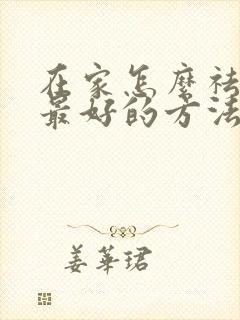 在家怎麼祛
最好的方法
姜華珺